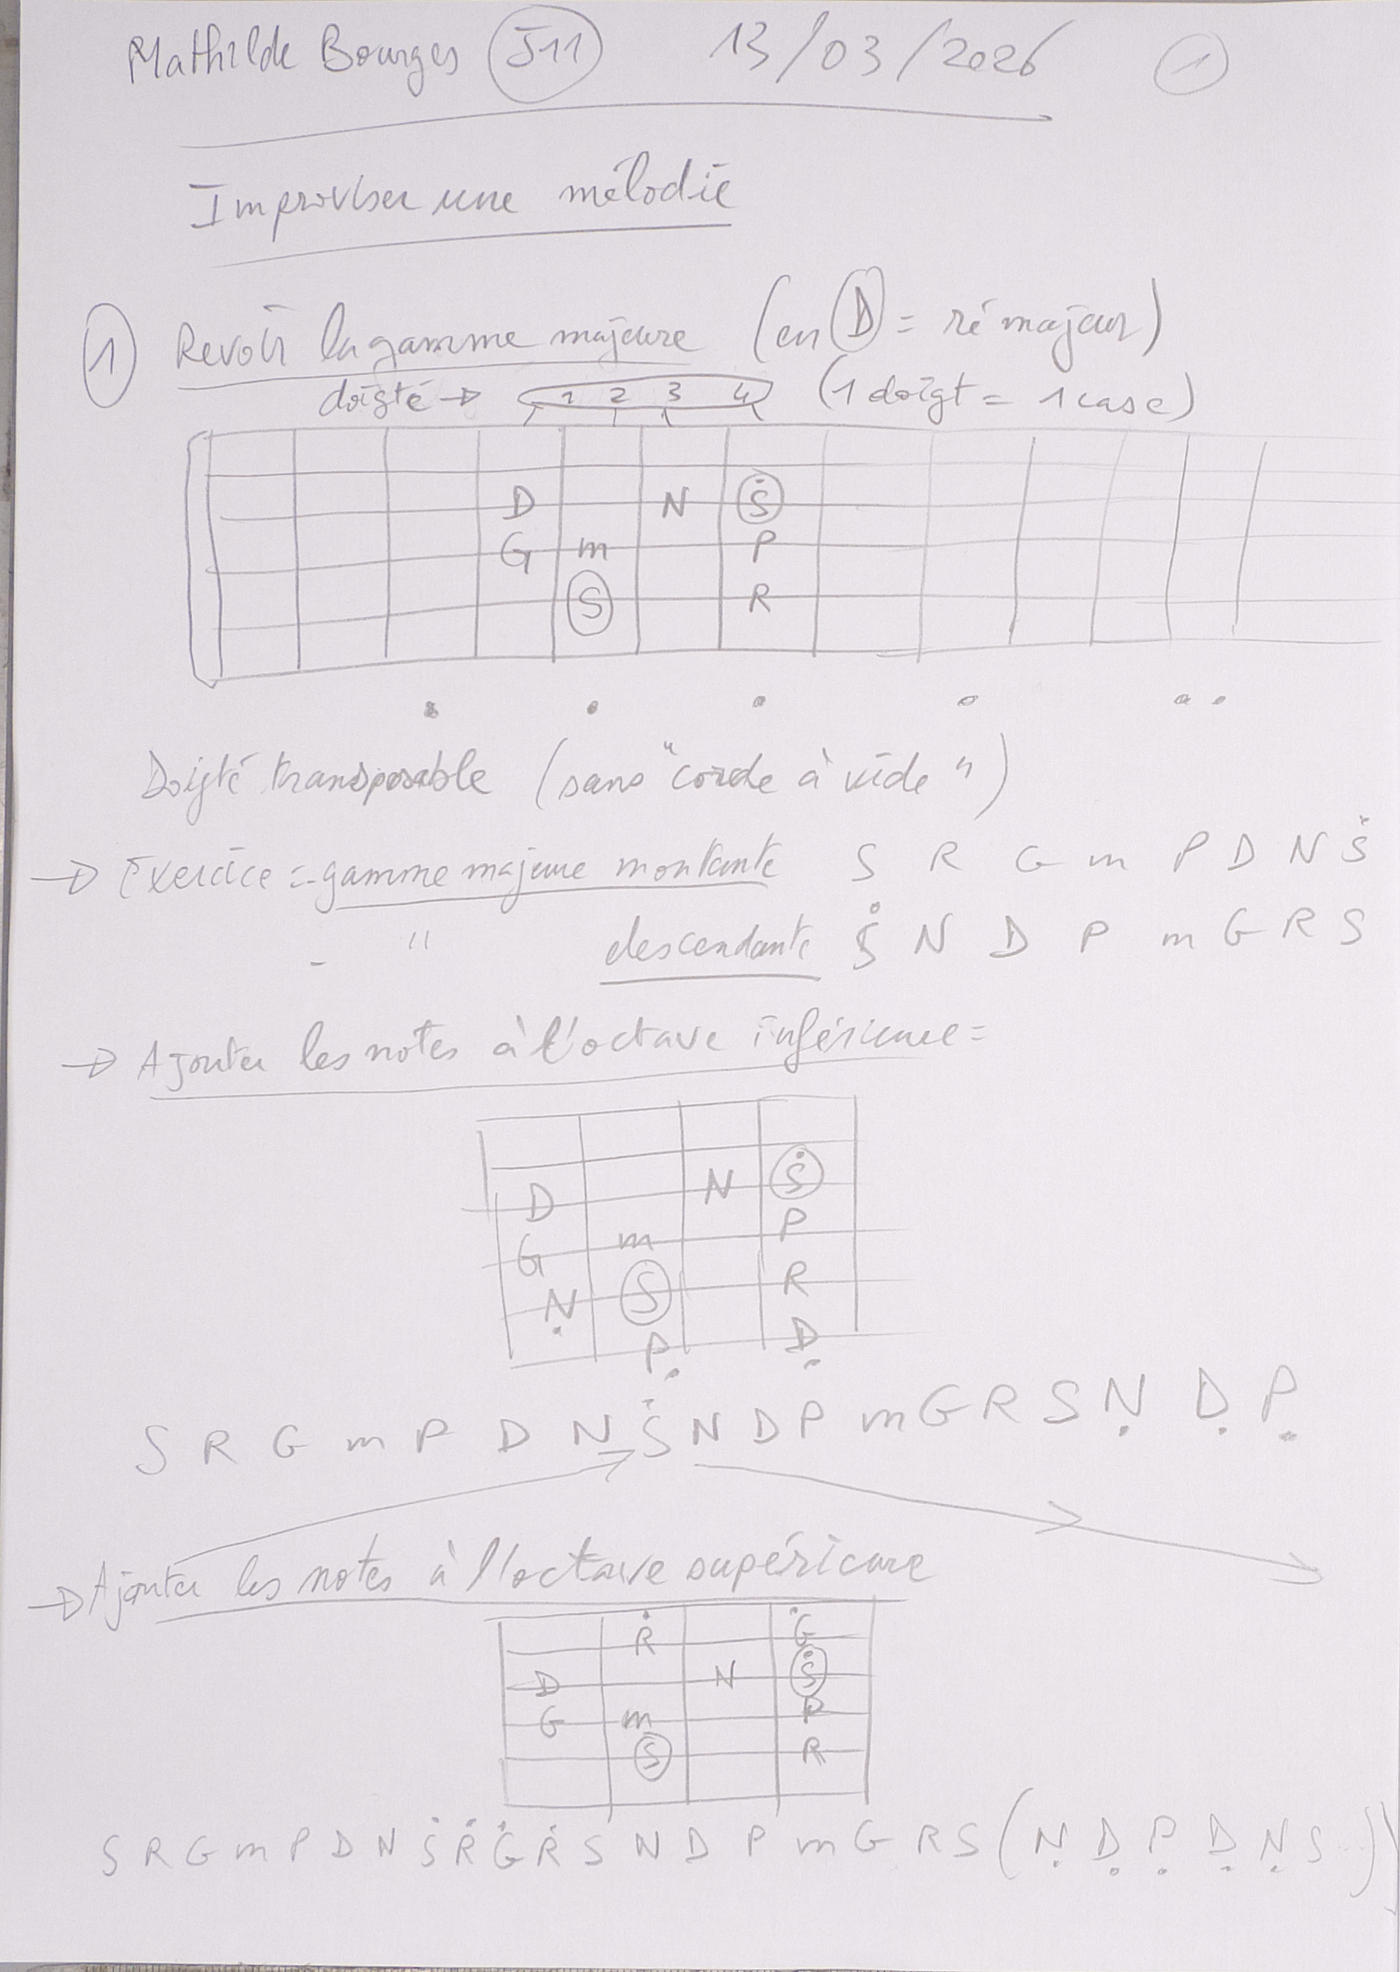 Mathilde Bourges J11 13/03/2026 1
Improviser une mélodie
1 Revoir la gamme majeure (en D = ré majeur)
doigté → 1 2 3 4 (1 doigt = 1 case)
D N Ṡ
G m P
S R
Doigté transposable (sans "corde à vide")
→ Exercice = gamme majeure montante S R G m P D N Ṡ
- " descendante Ṡ N D P m G R S
→ Ajouter les notes à l'octave inférieure =
D N Ṡ
G m P
Ṇ S R
P. Ḍ
S R G m P D N Ṡ N D P m G R S Ṇ Ḍ P.
→ Ajouter les notes à l'octave supérieure
Ṙ Ġ
D N Ṡ
G m P
S R
S R G m P D N Ṡ Ṙ Ġ Ṙ S N D P m G R S (Ṇ Ḍ P. Ḍ Ṇ S..)